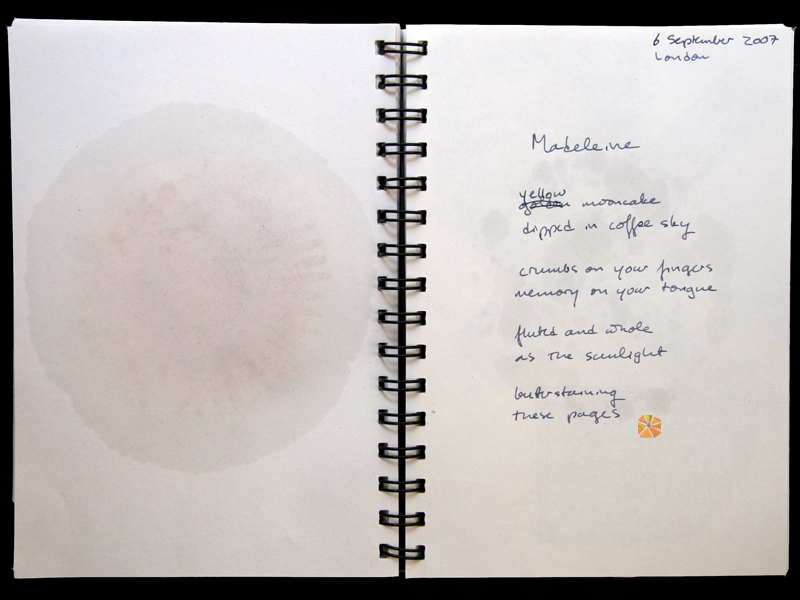 6 September 2007
London
Madeleine
yellow
golden mooncake
dipped in coffee sky
crumbs on your fingers
memory on your tongue
fluted and whole
as the sunlight
butterstaining
these pages